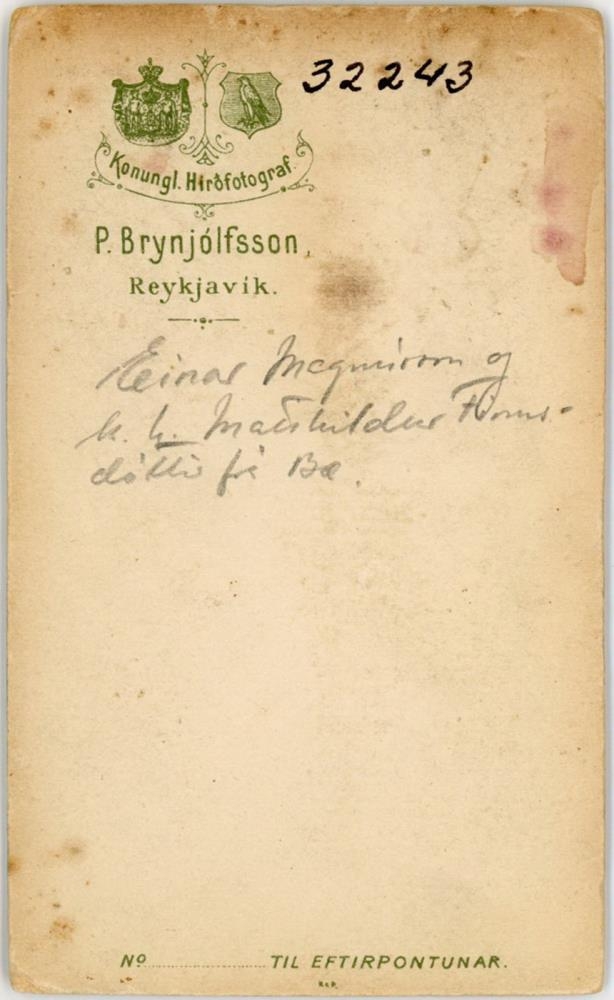 32243
Konungl. Hirðfotograf.
P. Brynjólfsson,
Reykjavík.
Einar Magnússon og
k. h. Matthildur
dóttir frá Bæ.
No TIL EFTIRPÖNTUNAR.